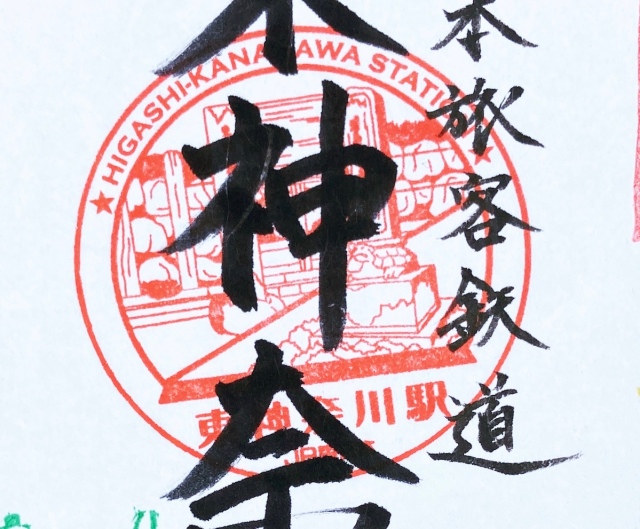 本旅客鉄道
神奈
HIGASHI-KANAGAWA STATION
東神奈川駅